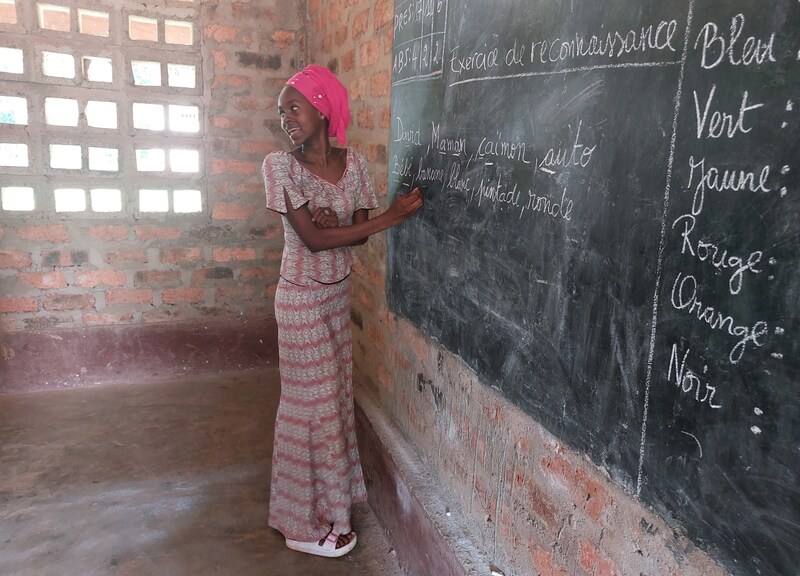 PRES
ABS
Exercice de reconnaissance
David, Maman, çaïmon, auto
Bébé, banane, blanc, pintade, ronde
Bleu :
Vert :
Jaune :
Rouge :
Orange :
Noir :